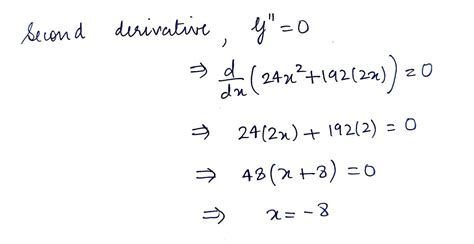 Second derivative, y"=0
⇒ d/dx (24x²+192(2x)) = 0
⇒ 24(2x) + 192(2) = 0
⇒ 48(x+8) = 0
⇒ x = -8